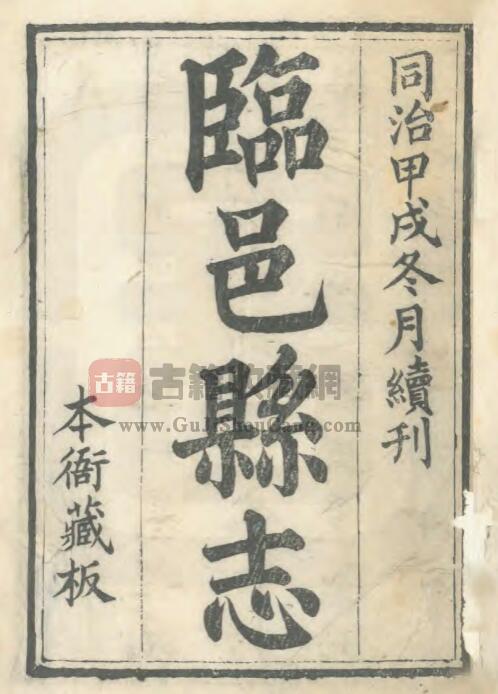 同治甲戌冬月續刊
臨邑縣志
本衙藏板
古籍
古籍收藏網
www.GuJiShouCang.com